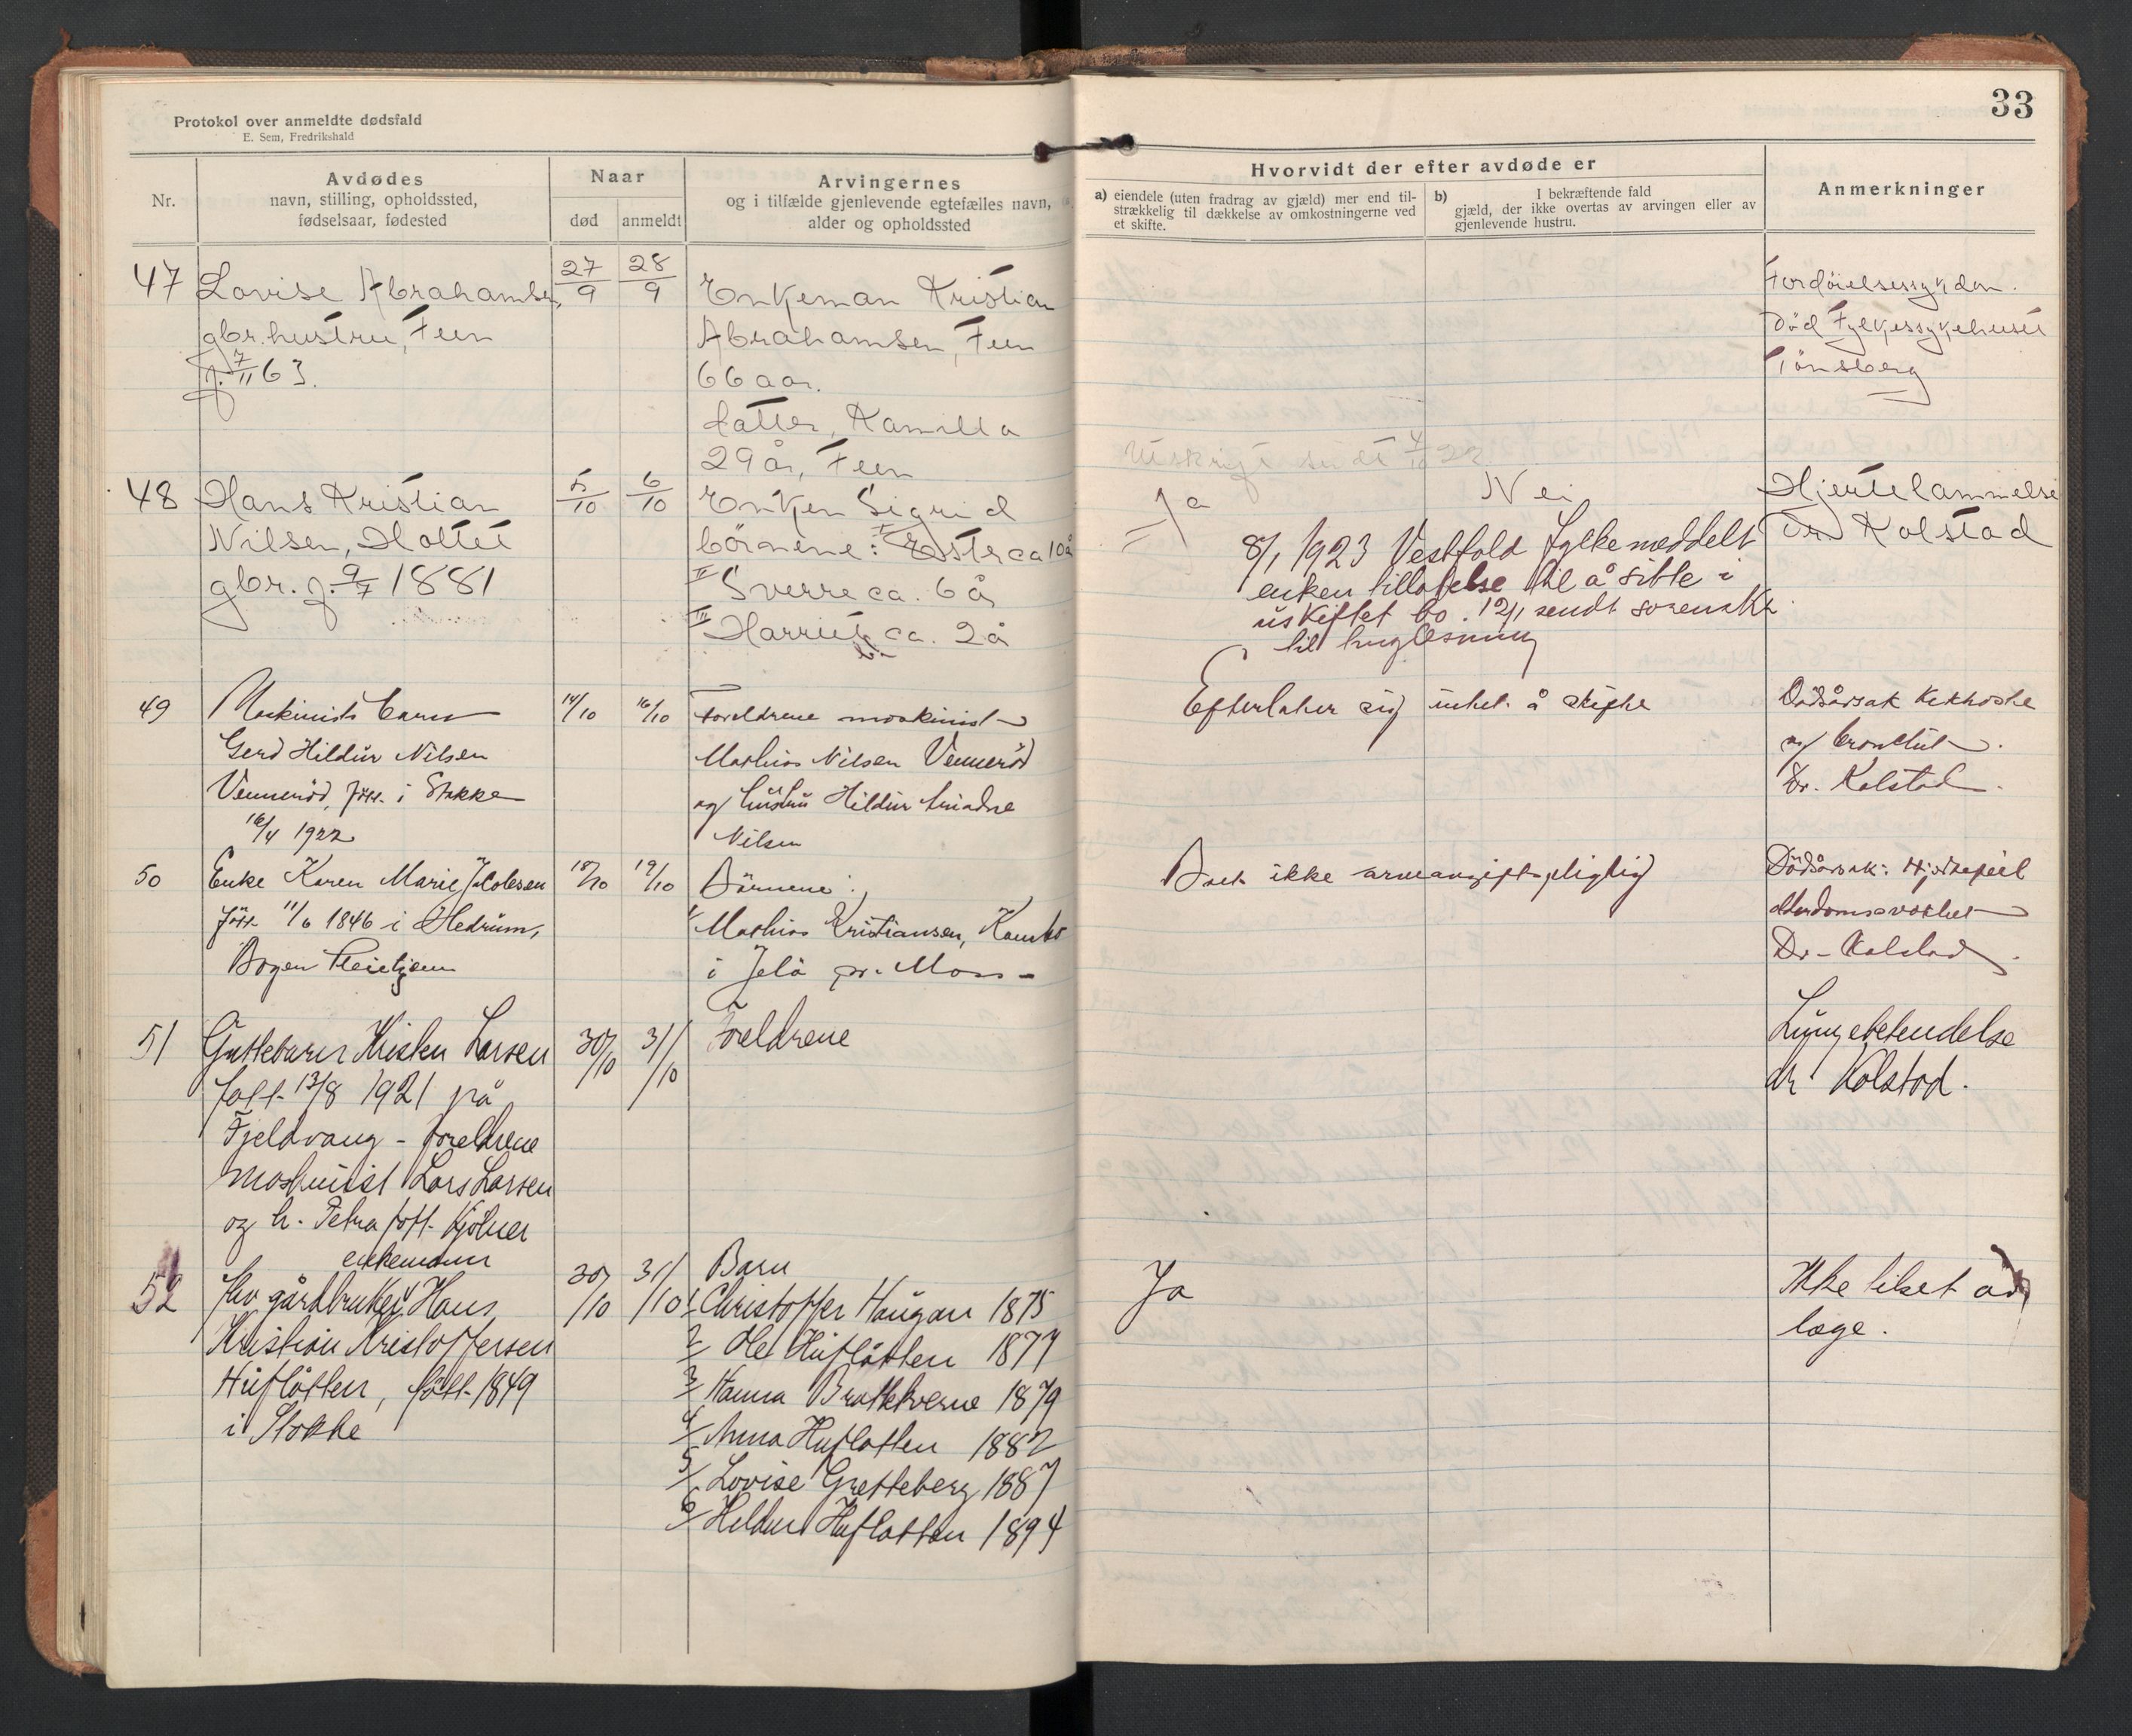 33
Protokol over anmeldte dødsfald
E. Sem, Fredrikshald
Nr.
Avdødes
navn, stilling, opholdssted,
fødselsaar, fødested
Naar
død
anmeldt
Arvingernes
og i tilfælde gjenlevende egtefælles navn,
alder og opholdssted
Hvorvidt der efter avdøde er
a) eiendele (uten fradrag av gjæld) mer end til-
strækkelig til dækkelse av omkostningerne ved
et skifte.
b) I bekræftende fald
gjæld, der ikke overtas av arvingen eller av
gjenlevende hustru.
Anmerkninger
47
Lovise Abrahamsen,
gbr.hustru, Feen
f. 7/11 63.
27/9
28/9
Enkeman Kristian
Abrahamsen, Feen
66 aar.
datter, Kamilla
29 år, Feen
Fordöielsessygdom.
Död Fylkessykehuset
Tönsberg
Utskrift sendt 4/10 22
48
Hans Kristian
Nilsen, Hottet
gbr. f. 9/7 1881
5/10
6/10
Enken Sigrid
börnene: I Ester ca 10 å
II Sverre ca. 6 år
III Harriet ca. 2 å
Ja
Nei
8/1 1923 Vestfold fylke meddelt
enken tillatelse til å sitte i
uskiftet bo. 12/1 sendt sorenskr.
til tinglesning
Hjertelammelse
Dr Kolstad
49
Maskinists barn
Gerd Hildur Nilsen
Vennerød, født i Stokke
16/4 1922
14/10
16/10
Foreldrene maskinist
Mathias Nilsen Vennerød
og hustru Hildur
Nilsen
Efterlater sig intet å skifte
Dødsårsak Kikhoste
og bronchit.
Dr. Kolstad.
50
Enke Karen Marie Jacobsen
født 11/6 1846 i Hedrum,
Bogen Pleiehjem
18/10
19/10
Börnene:
1/ Mathias Kristiansen, Kambo
i Jelö pr. Moss -
Boet ikke arveavgiftspligtig
Dödsårsak: Hjertefeil
alderdomssvakhet
Dr. Kolstad.
51
Guttebarn Kristen Larsen
født 13/8 1921 på
Fjeldvang - foreldrene
maskinist Lars Larsen
og h. Petra født Kjølner
30/10
31/10
Foreldrene
Lungebetendelse
dr Kolstad.
52
enkemann
fhv gårdbruker Hans
Kristian Kristoffersen
Hufløtten, født 1849
i Stokke
30/10
31/10
Barn
1/ Christoffer Haugan 1875
2/ Ole Hufløtten 1877
3/ Hanna Brattekverne 1879
4/ Anna Hufløtten 1882
5/ Lovise Gretteberg 1887
6/ Hildur Hufløtten 1894
Ja
Ikke tilset av
læge.